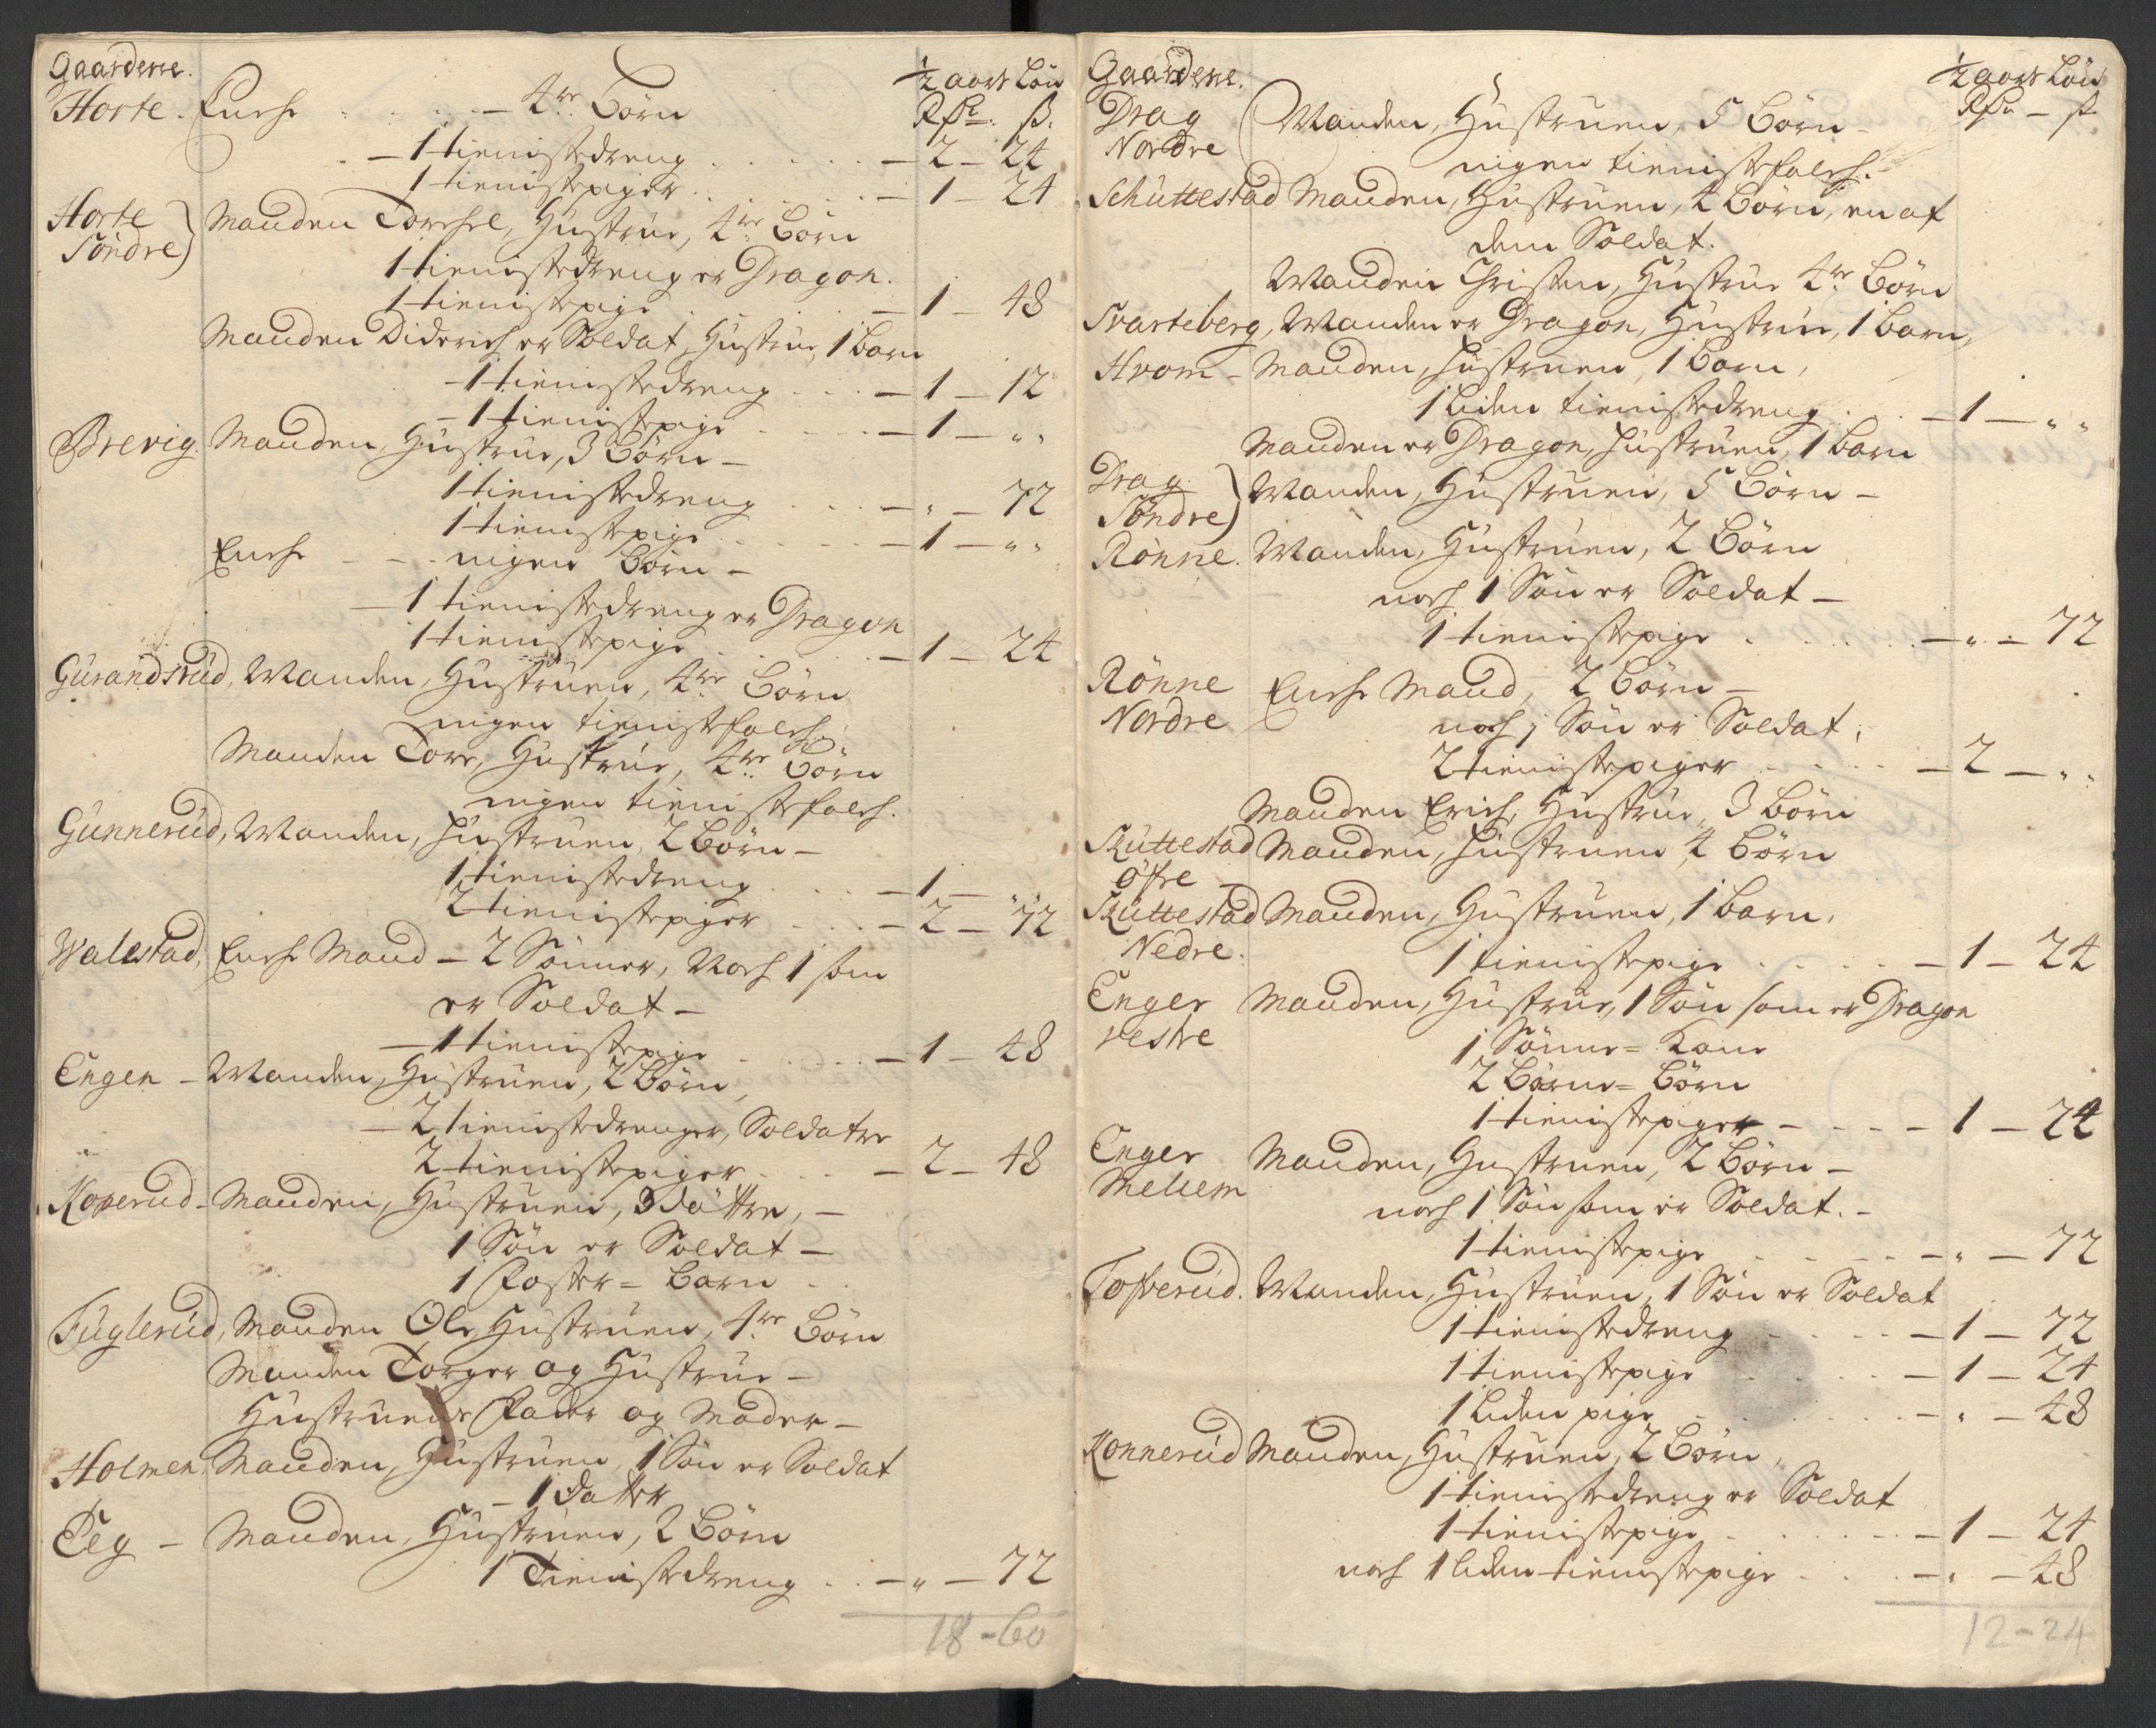 Gaardene.
½ aars Løn
Horte. Encke . . . . – 4re Børn Rdr. ß.
– 1 tienistedreng . . . . . – 2 – 24
1 tienistepiger . . . . . – 1 – 24
Horte Søndre) Manden Torchel, Hustrue, 4re Børn
1 tienistedreng er Dragon.
1 tienistepige . . . . – 1 – 48
Manden Diderich er Soldat, Hustrue, 1 barn
– 1 tienistedreng . . . – 1 – 12
– 1 tienistepige . . . . – 1 – „
Brevig. Manden, Hustrue, 3 Børn –
1 tienistedreng . . . – „ – 72
1 tienistepige . . . . . – 1 – „
Encke – – . ingen Børn –
– 1 tienistedreng er Dragon
1 tienistepige . . . . – 1 – 24
Gurandsrud, Manden, Hustruen, 4re Børn
ingen tienistefolch.
Manden Tore, Hustrue, 4re Børn
ingen tienistefolch.
Gunnerud, Manden, Hustruen, 2 Børn –
1 tienistedreng . . . – 1 – „
2 tienistepiger . . . – 2 – 72
Walestad, Encke Mand – 2 Sønner, Noch 1 som
er Soldat –
– 1 tienistepige . . . . – 1 – 48
Engen – Manden, Hustruen, 2 Børn,
– 2 tienistedrenger, Soldatre
2 tienistepiger . . . – 2 – 48
Koperud – Manden, Hustruen, 3 Døttre, –
1 Søn er Soldat –
1 Foster = Barn . .
Fuglerud, Manden Ole, Hustruen, 4re Børn
Manden Torger og Hustrue –
Hustruens Fader og Moder –
Holmen, Manden, Hustruen, 1 Søn er Soldat
– 1 Datter
Teg – Manden, Hustruen, 2 Børn
1 Tienistedreng . . – „ – 72
18 – 60
Gaardene. ½ aars Løn
Drag Nordre (Manden, Hustruen, 5 Børn – Rdr – ß
ingen tienistefolch.
Schuttestad Manden, Hustruen, 4 Børn, en af
dem Soldat.
Manden Christen, Hustrue 4re Børn
Svarteberg, Manden er Dragon, Hustrue, 1 barn,
Hvom – Manden, Hustruen, 1 Barn,
1 liden tienistedreng . . – 1 – „
Manden er Dragon, Hustruen, 1 barn
Drag Søndre) Manden, Hustruen, 5 Børn –
Rønne. Manden, Hustruen, 2 Børn
noch 1 Søn er Soldat –
1 tienistepige . . . . . – „ – 72
Rønne Nordre Encke Mand, 2 Børn –
noch 1 Søn er Soldat,
2 tienistepiger . . . . – 2 – „
Manden Erich, Hustrue, 3 børn
Skuttestad Manden, Hustruen 4 Børn
Øfre –
Skuttestad Manden, Hustruen, 1 barn,
Nedre. 1 tienistepige . . . . . – 1 – 24
Enger Manden, Hustrue, 1 Søn som er Dragon
vestre 1 Sønne = Kone
2 Børne = Børn
1 tienistepiger – – – – 1 – 24
Enger Manden, Hustruen, 2 Børn –
Mellem noch 1 Søn som er Soldat. –
1 tienistepige . . . . – „ – 72
Tofterud. Manden, Hustruen, 1 Søn er Soldat
1 tienistedreng . . . . – 1 – 72
1 tienistepige . . . . . – 1 – 24
1 liden pige . . . . . – „ – 48
Konnerud Manden, Hustruen, 2 Børn,
1 tienistedreng er Soldat
1 tienistepige . . . . . – 1 – 24
noch 1 liden tienistepige . . . . – „ – 48
12 – 24